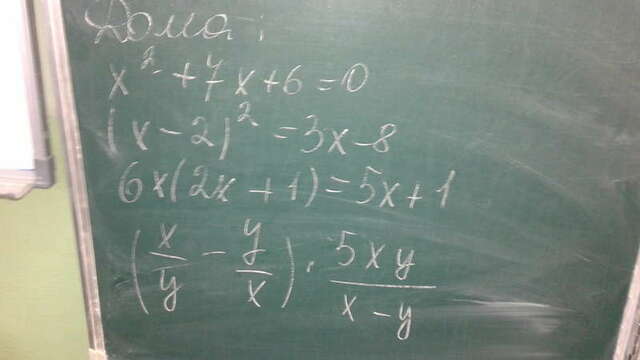 Дома:
x² + 7x + 6 = 0
(x - 2)² = 3x - 8
6x(2x + 1) = 5x + 1
(x/y - y/x) · 5xy/(x - y)